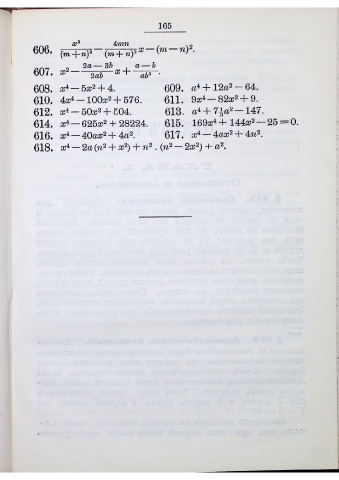 165
606. x²/(m+n)² − 4mn/(m+n)² x − (m − n)².
607. x² − (2a − 3b)/2ab x + (a − b)/ab².
608. x⁴ − 5x² + 4. 609. a⁴ + 12a² − 64.
610. 4x⁴ − 100x² + 576. 611. 9x⁴ − 82x² + 9.
612. x⁴ − 50x² + 504. 613. a⁴ + 7⅓a² − 147.
614. x⁴ − 625x² + 28224. 615. 169x⁴ + 144x² − 25 = 0.
616. x⁴ − 40ax² + 4a². 617. x⁴ − 4ax² + 4n².
618. x⁴ − 2a (n² + x²) + n² . (n² − 2x²) + a².